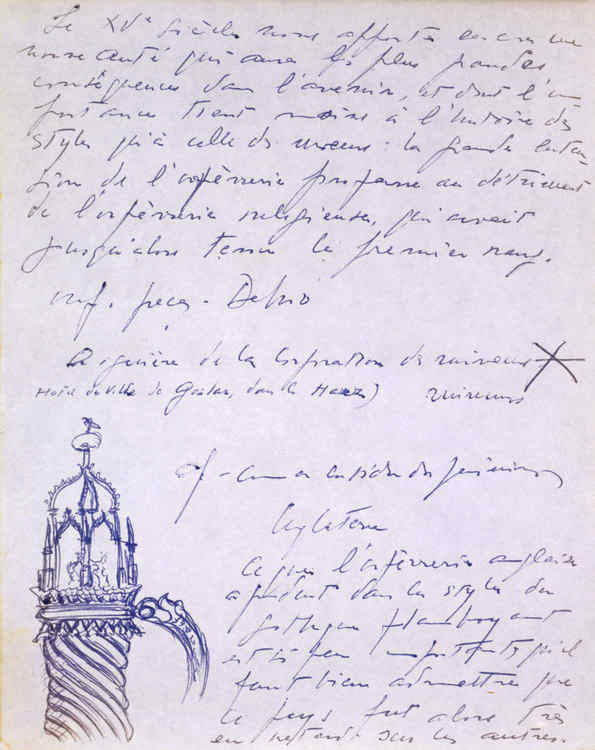 Le XVe siècle nous apporte encore une
nouveauté qui aura les plus grandes
conséquences dans l'avenir, et dont l'im
portance tient moins à l'histoire des
styles qu'à celle des moeurs : la grande exten
sion de l'orfèvrerie profane au détriment
de l'orfèvrerie religieuse, qui avait
jusqu'alors tenu le premier rang.
Dehio
Aiguière de la Corporation des mineurs
Hotel de Ville de Goslar, dans le Harz)
mineurs
Angleterre
Ce que l'orfèvrerie anglaise
a produit dans les styles du
gothique flamboyant
est si peu important qu'il
faut bien admettre que
ce pays fut alors très
en retard sur les autres.